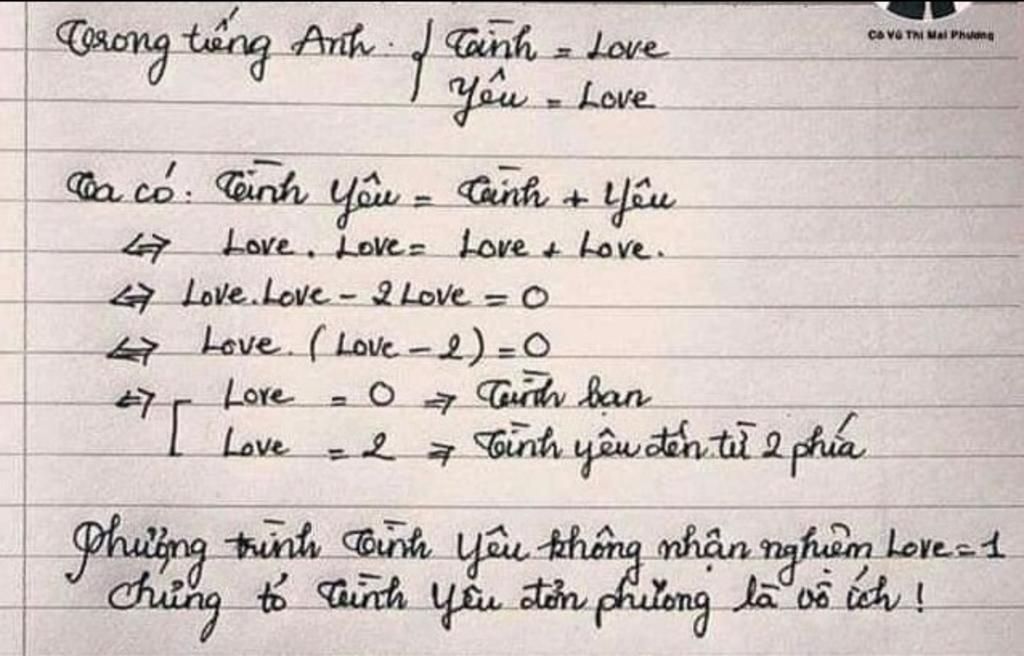 Cô Vũ Thị Mai Phương
Trong tiếng Anh: { Tình = Love
Yêu = Love
Ta có: Tình Yêu = Tình + Yêu
<=> Love . Love = Love + Love.
<=> Love.Love - 2Love = 0
<=> Love. (Love - 2) = 0
<=> [ Love = 0 => Tình bạn
Love = 2 => Tình yêu đến từ 2 phía
Phương trình Tình Yêu không nhận nghiệm Love = 1
chứng tỏ Tình Yêu đơn phương là vô ích!